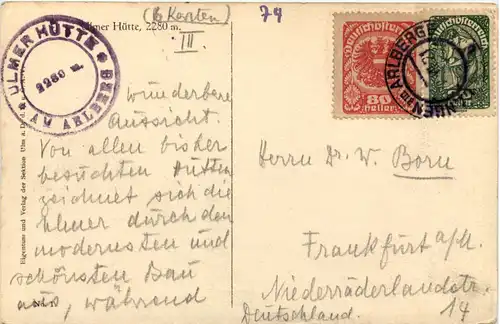 (6 Karten)
74
Ulmer Hütte, 2280 m.
III
ULMER HÜTTE
2280 m.
AM ARLBERG
wunderbare
Aussicht.
Von allen bisher
besuchten Hütten
zeichnet sich die
Ulmer durch den
modernsten und
schönsten Bau
aus, während
Eigentum und Verlag der Sektion Ulm a. D. d.
Deutschösterreich
80
Heller
Deutschösterreich
AM ARLBERG
Herrn Dr. W. Born
Frankfurt a/M.
Niederräderlandstr.
14
Deutschland.